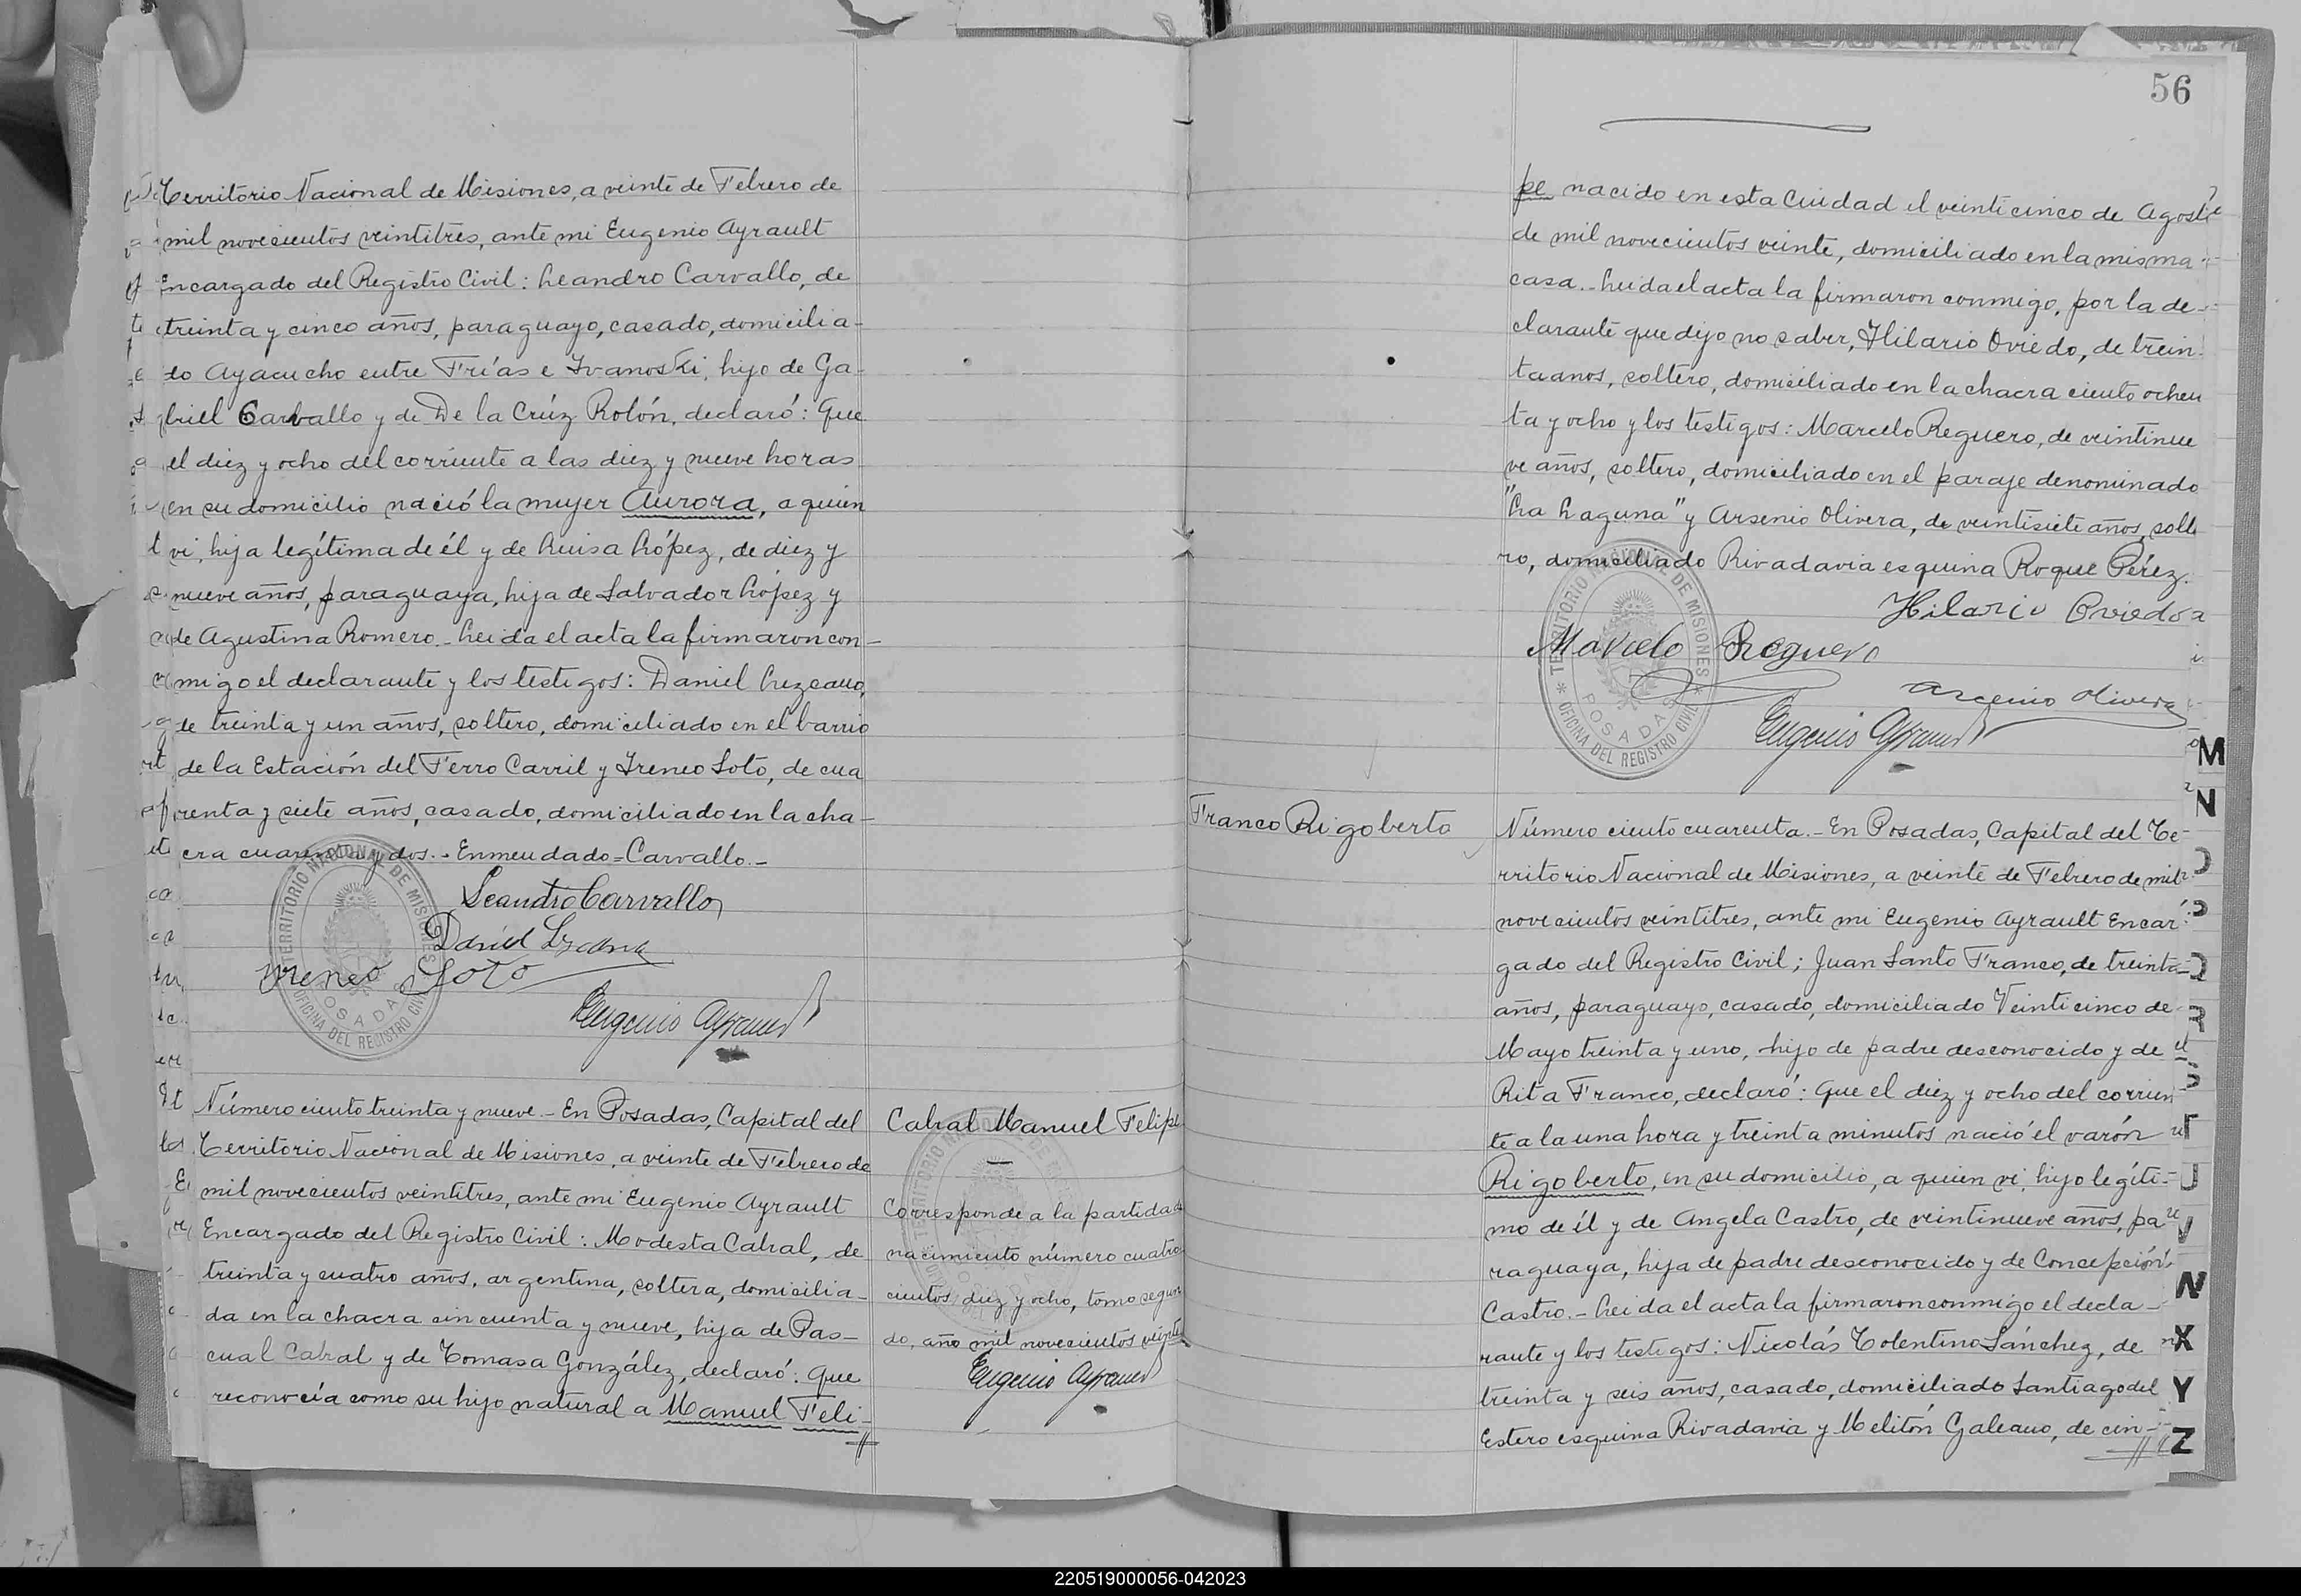 Territorio Nacional de Misiones, a veinte de Febrero de
mil novecientos veintitres, ante mi Eugenio Ayrault
Encargado del Registro Civil: Leandro Carvallo, de
treinta y cinco años, paraguayo, casado, domicilia-
do Ayacucho entre Frías e Ivanoski, hijo de Ga-
briel Carvallo y de De la Crúz Rolón, declaró: Que
el diez y ocho del corriente a las diez y nueve horas
en su domicilio nació la mujer Aurora, a quien
vi, hija legítima de él y de Luisa López, de diez y
nueve años, paraguaya, hija de Salvador López y
de Agustina Romero.- Leida el acta la firmaron con-
migo el declarante y los testigos: Daniel Lezcano,
de treinta y un años, soltero, domiciliado en el barrio
de la Estación del Ferro Carril y Ireneo Soto, de cua
renta y siete años, casado, domiciliado en la cha-
cra cuarenta y dos.- Enmendado=Carvallo.-
Leandro Carvallo
Daniel Lezcano
Ireneo Soto
Eugenio Ayrault
TERRITORIO NACIONAL DE MISIONES
POSADAS
OFICINA DEL REGISTRO CIVIL
Número ciento treinta y nueve.- En Posadas, Capital del
Territorio Nacional de Misiones, a veinte de Febrero de
mil novecientos veintitres, ante mi Eugenio Ayrault
Encargado del Registro Civil: Modesta Cabral, de
treinta y cuatro años, argentina, soltera, domicilia-
da en la chacra cincuenta y nueve, hija de Pas-
cual Cabral y de Tomasa González, declaró: Que
reconocía como su hijo natural a Manuel Feli-
Cabral Manuel Felipe
Corresponde a la partida de
nacimiento número cuatro
cientos diez y ocho, tomo segun
do, año mil novecientos veinte
Eugenio Ayrault
56
pe nacido en esta Ciudad el veinticinco de Agosto
de mil novecientos veinte, domiciliado en la misma
casa.- Leida el acta la firmaron conmigo, por la de-
clarante que dijo no saber, Hilario Oviedo, de trein
ta anos, soltero, domiciliado en la chacra ciento ochen
ta y ocho y los testigos: Marcelo Reguero, de veintinue
ve años, soltero, domiciliado en el paraje denominado
"La Laguna" y Arsenio Olivera, de veintisiete años, solte
ro, domiciliado Rivadavia esquina Roque Pérez.
Hilario Oviedo
Marcelo Reguero
Arcenio Olivera
Eugenio Ayrault
TERRITORIO NACIONAL DE MISIONES
POSADAS
OFICINA DEL REGISTRO CIVIL
Franco Rigoberto
Número ciento cuarenta.- En Posadas, Capital del Te-
rritorio Nacional de Misiones, a veinte de Febrero de mil
novecientos veintitres, ante mi Eugenio Ayrault Encar-
gado del Registro Civil; Juan Santo Franco, de treinta
años, paraguayo, casado, domiciliado Veinticinco de
Mayo treinta y uno, hijo de padre desconocido y de
Rita Franco, declaró: Que el diez y ocho del corrien
te a la una hora y treinta minutos nació el varón
Rigoberto, en su domicilio, a quien vi, hijo legíti-
mo de él y de Angela Castro, de veintinueve años, pa
raguaya, hija de padre desconocido y de Concepción
Castro.- Leida el acta la firmaron conmigo el decla-
rante y los testigos: Nicolás Tolentino Sánchez, de
treinta y seis años, casado, domiciliado Santiago del
Estero esquina Rivadavia y Melitón Galeano, de cin-
M
N
X
Y
Z
220519000056-042023